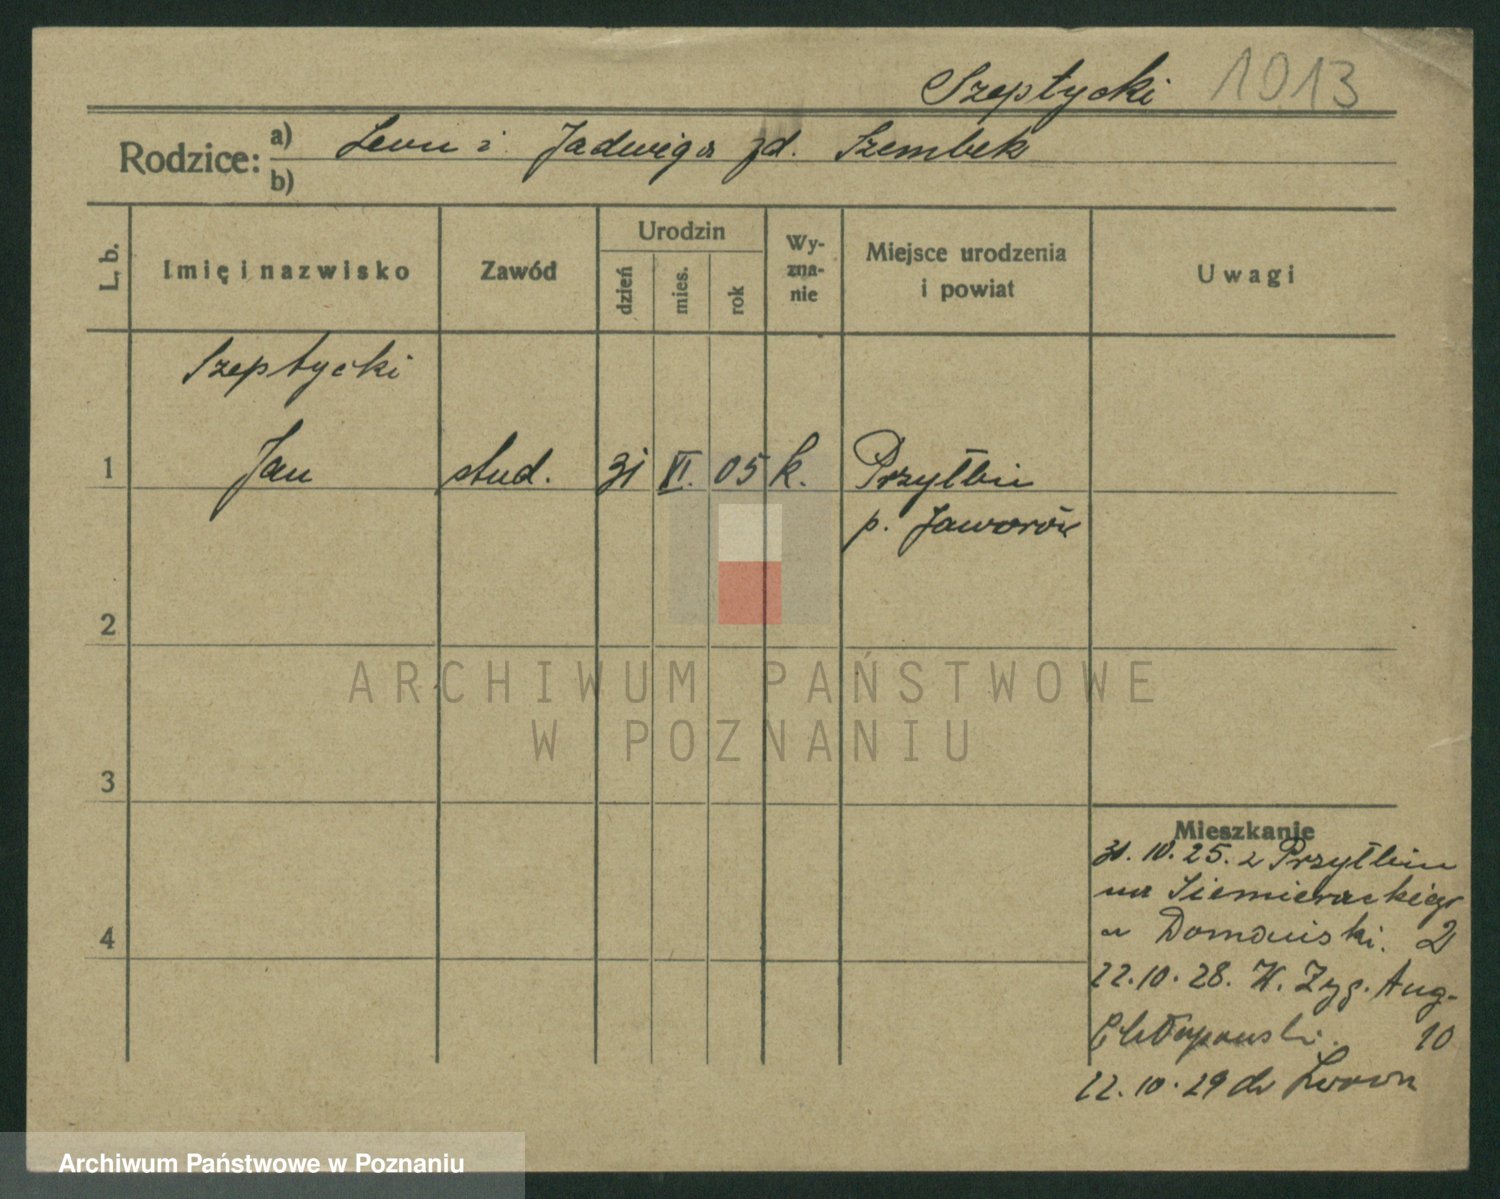 Szeptycki 1013
Rodzice: a) Leon i Jadwiga zd. Szembek
b)
L. b.
Imię i nazwisko
Zawód
Urodzin
dzień
mies.
rok
Wy-
zna-
nie
Miejsce urodzenia
i powiat
Uwagi
Szeptycki
1 Jan stud. 31 VI. 05 k. Przyłbin
p. Jaworów
2
3
4
Mieszkanie
31. 10. 25. z Przyłbin
na Siemierackiego
u Domański. 2
22. 10. 28. W. Zyg. Aug.
Chłapowski. 10
22. 10. 29 do Lwowa
ARCHIWUM PAŃSTWOWE
W POZNANIU
Archiwum Państwowe w Poznaniu